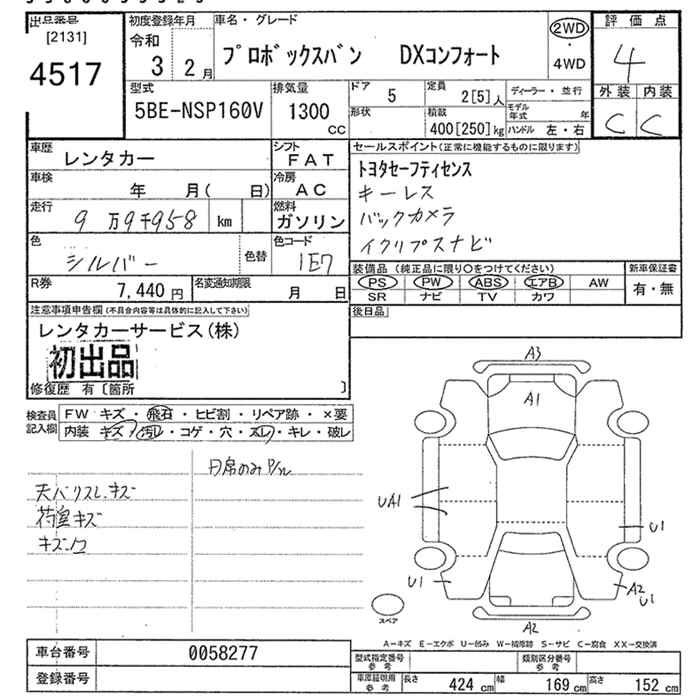 出品番号
[2131]
4517
初度登録年月
令和
3 2月
車名・グレード
プロボックスバン DXコンフォート
2WD
・
4WD
評価点
4
外装 内装
C C
型式
5BE-NSP160V
排気量
1300
CC
ドア 5
定員 2[5]人
ディーラー・並行
形状
積載 400[250]kg
モデル年式 年
ハンドル 左・右
車歴
レンタカー
シフト
FAT
車検
年 月( 日)
冷房
AC
走行
9万9千958 km
燃料
ガソリン
色
シルバー
色替
色コード
1E7
R券
7,440円
名変通知期限
月 日
セールスポイント(正常に機能するものに限ります)
トヨタセーフティセンス
キーレス
バックカメラ
イクリプスナビ
装備品(純正品に限り○をつけてください)
新車保証書
PS PW ABS エアB AW
有・無
SR ナビ TV カワ
後日品
注意事項申告欄(不具合内容等は具体的に記入して下さい)
レンタカーサービス(株)
初出品
修復歴 有〔箇所 〕
検査員記入欄
FW キズ・飛石・ヒビ割・リペア跡・×要
内装 キズ・汚レ・コゲ・穴・スレ・キレ・破レ
天バリスレ.キズ
荷室キズ
A3
A1
UA1
U1
U1
A2
U1
A2
スペア
A−キズ E−エクボ U−凹み W−補修跡 S−サビ C−腐食 XX−交換済
車台番号
0058277
登録番号
型式指定番号
参考
類別区分番号
参考
車庫証明用
参考
長さ 424cm 幅 169cm 高さ 152cm